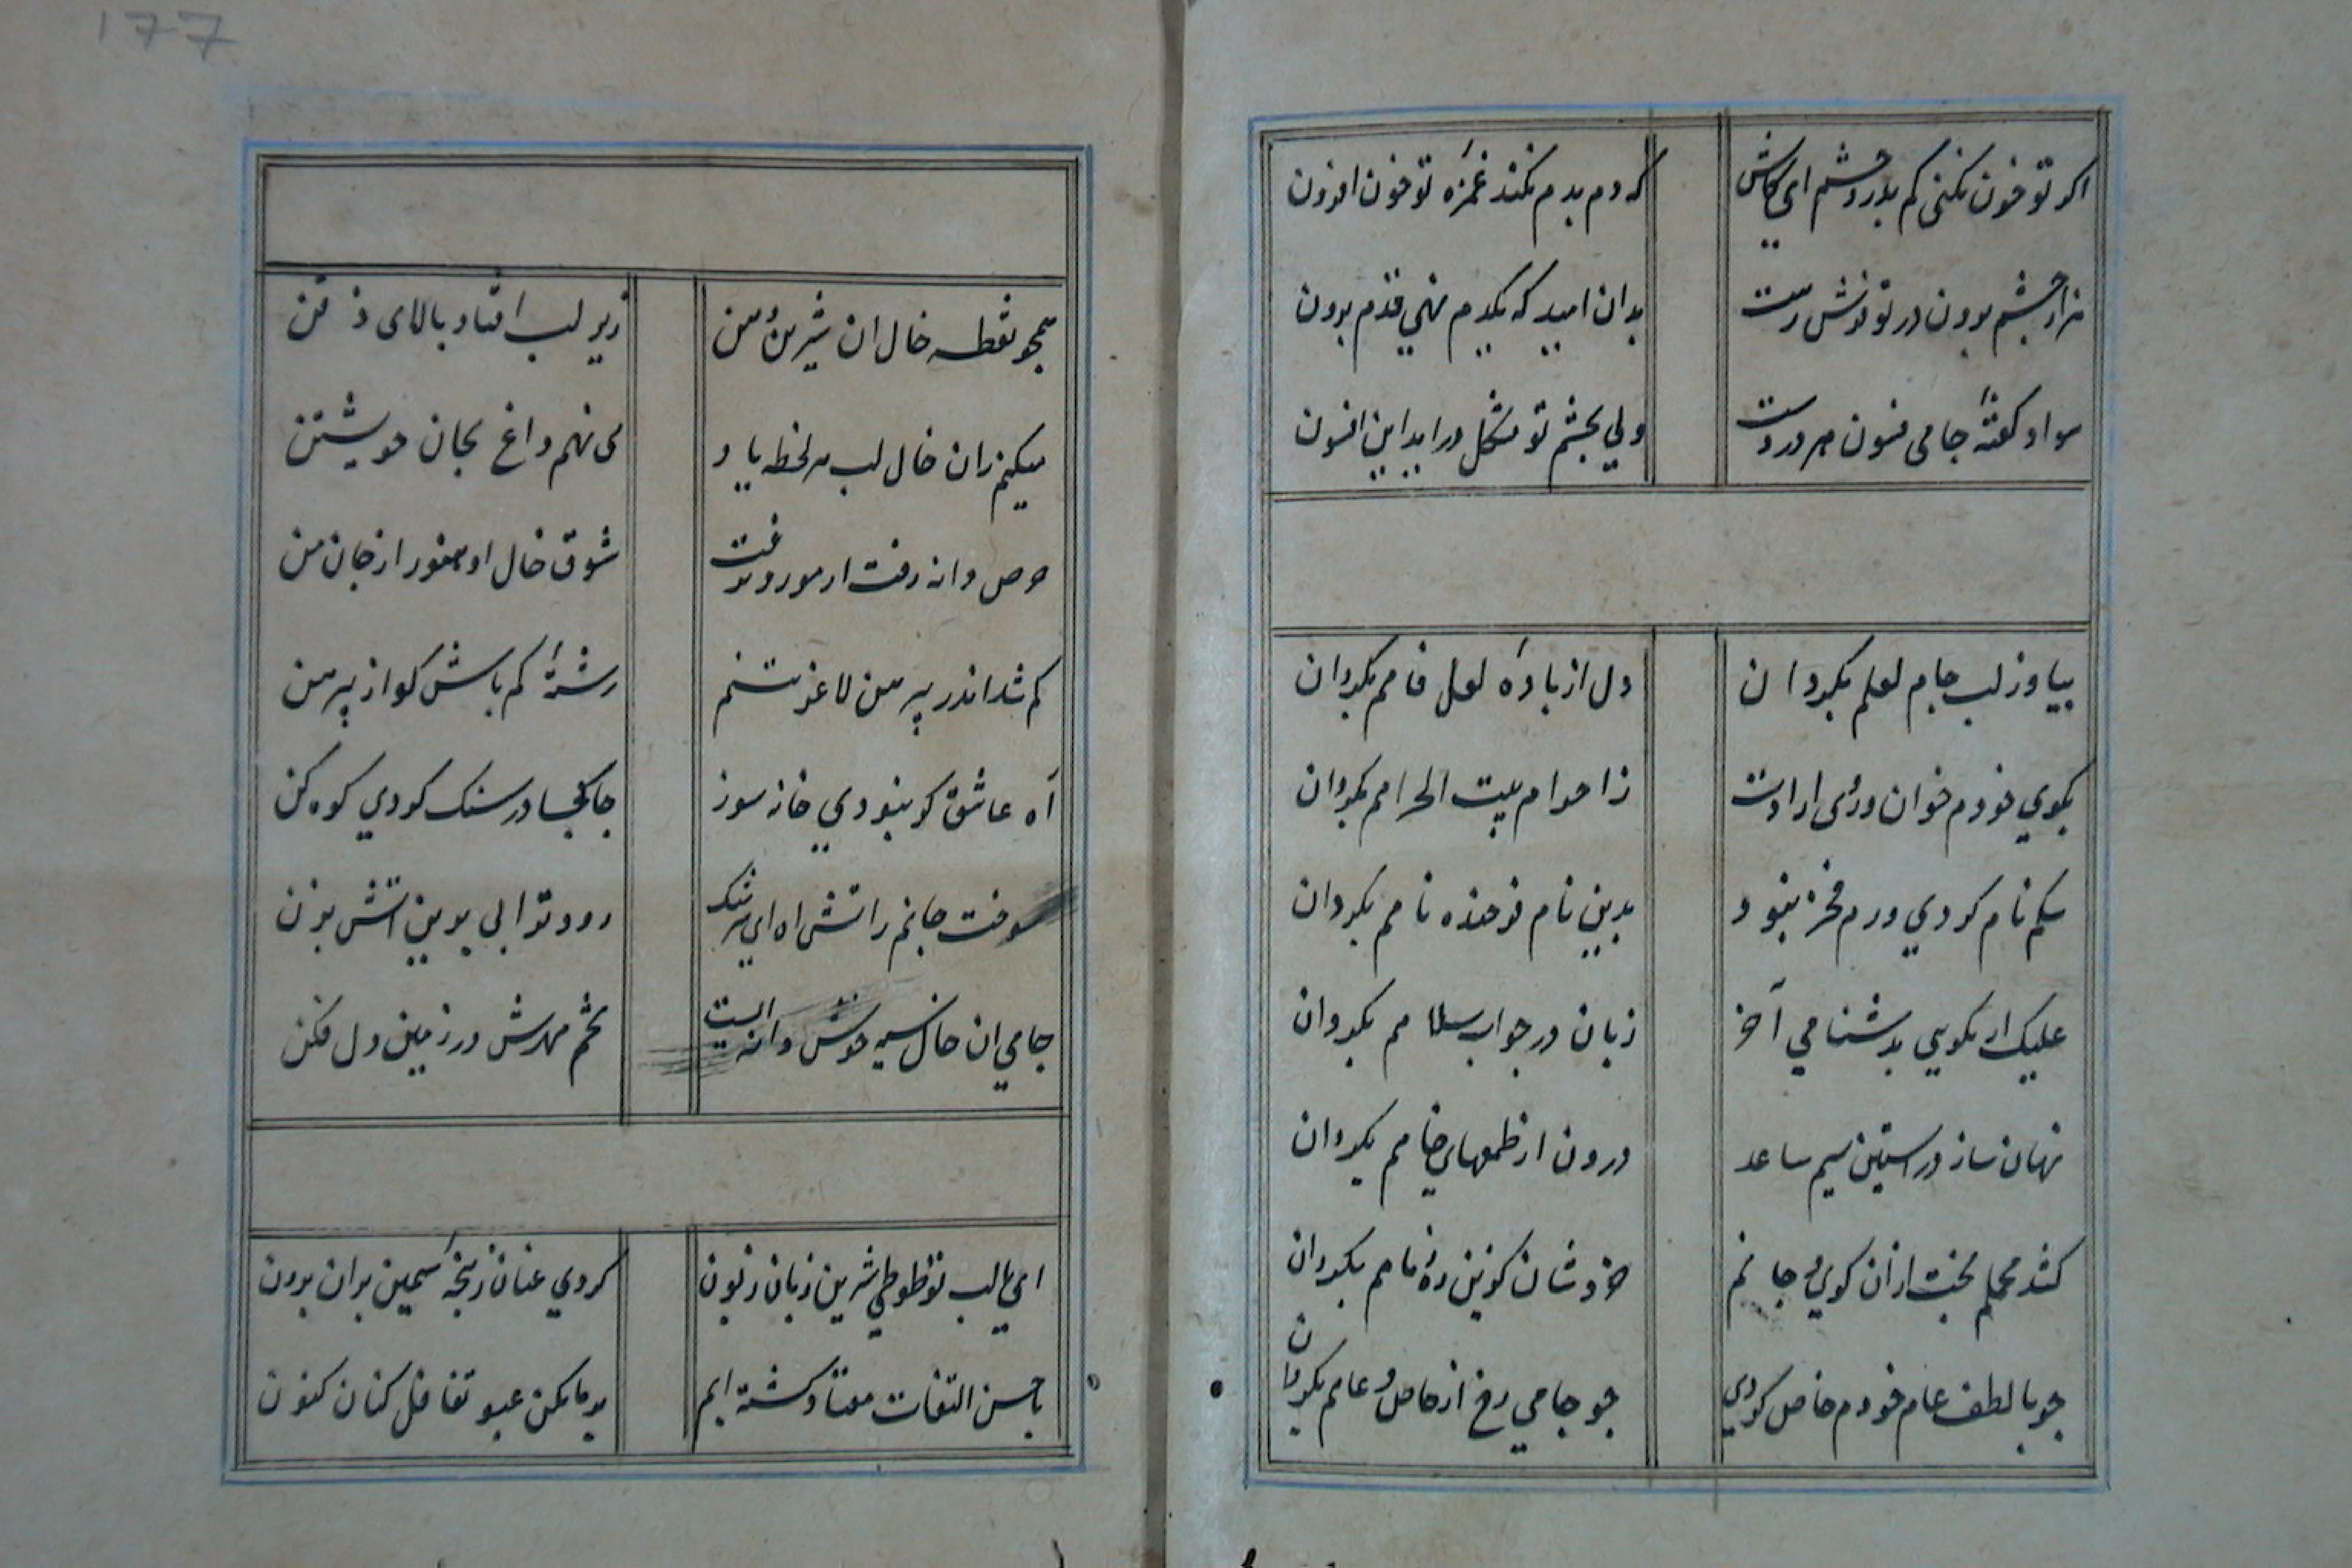 اکر تو خون نکنی کم بدرد چشم ای کاش
که دم بدم نکند غمزهٔ تو خون افزون
هزار چشم برون در تو فرش رهست
بدان امید که یکدم نهی قدم برون
سواد کفتهٔ جامی فسون هر دردست
ولی بچشم تو مشکل دراید این افسون
بیا وز لب جام لعلم بکردان
دل از بادهٔ لعل فامم بکردان
بکوی خودم خوان و روی ارادت
ز احرام بیت الحرامم بکردان
سکم نام کردی ورم فخر نبود
بدین نام فرخنده نامم بکردان
علیک ار نکویی بدشنامی آخر
زبان در جواب سلامم بکردان
نهان ساز در استین سیم ساعد
درون از طمعهای خامم بکردان
کشد محملم بخت ازان کوی و جانم
خروشان کزین ره زمامم بکردان
چو با لطف عام خودم خاص کردی
چو جامی رخ از خاص و عامم بکردان
177
همچو نقطه خال ان شیرین دهن
زیر لب افتاد بالای ذقن
میکنم زان خال لب هر لحظه یاد
می نهم داغ بجان خویشتن
حرص دانه رفت از مور و نرفت
شوق خال او هنوز از جان من
کم شد اندر پیرهن لاغر تنم
رشتهٔ کم باش کو از پیرهن
آه عاشق کر نبودی خانه سوز
جا کجا در سنک کردی کوه کن
سوخت جانم ز اتش اه ای سرشک
رو دو تو ابی برین اتش بزن
جامی ان خال سیه خوش دانه ایست
تخم مهرش در زمین دل فکن
ای با لب تو طوطی شیرین زبان زبون
کردی عنان ز پنجهٔ سیمین بران برون
با حسن التفات معتاد کشته ایم
بر ما مکن عبور تغافل کنان کنون